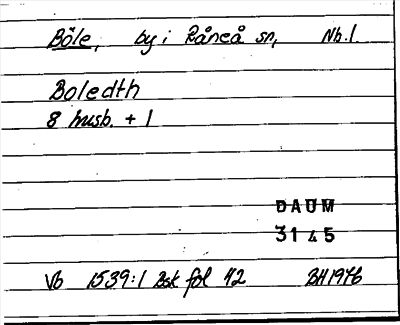 Böle, by i Råneå sn, Nb.l.
Boledth
8 husb. + 1
DAUM
3145
Vb 1539:1 Bsk fol 42 BH 1976